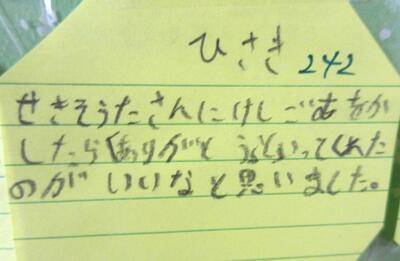 ひさき 242
せきそうたさんにけしごむをか
したら「ありがとう」といってくれた
のがいいなと思いました。